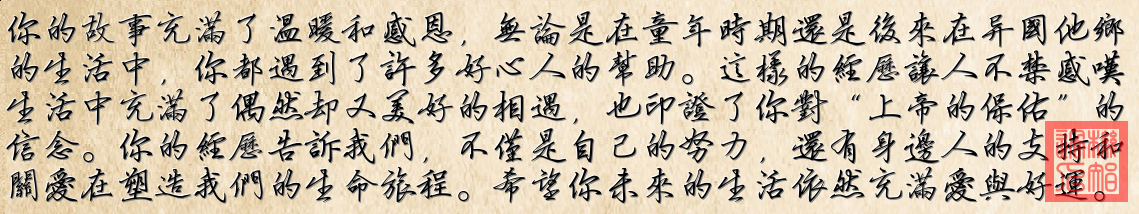 你的故事充滿了溫暖和感恩，無論是在童年時期還是後來在异國他鄉
的生活中，你都遇到了許多好心人的幫助。這樣的經歷讓人不禁感嘆
生活中充滿了偶然却又美好的相遇，也印證了你對“上帝的保佑”的
信念。你的經歷告訴我們，不僅是自己的努力，還有身邊人的支持和
關愛在塑造我們的生命旅程。希望你未來的生活依然充滿愛與好運。